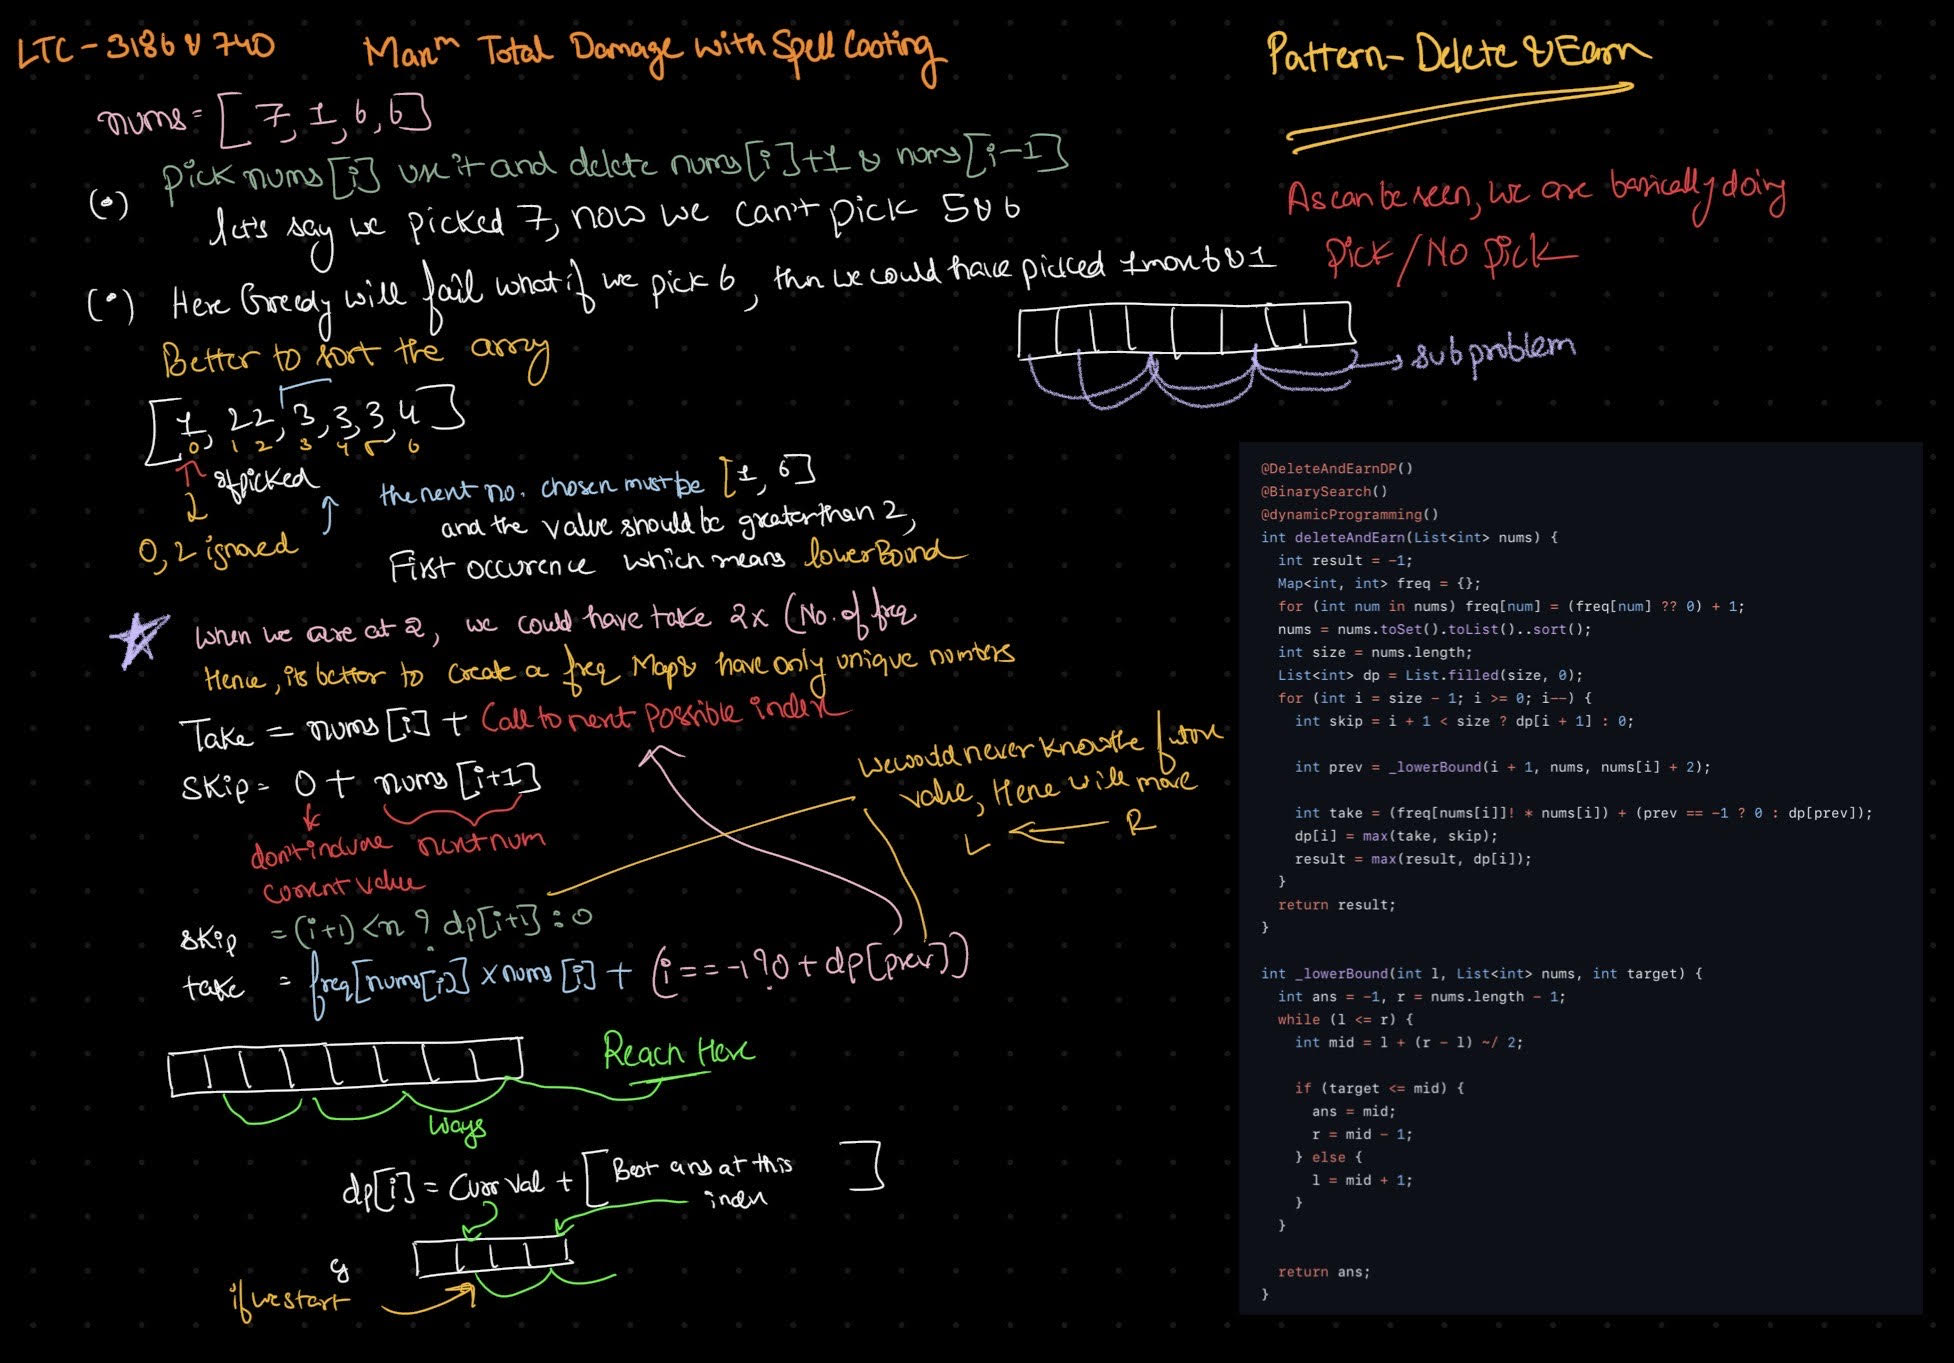 LTC - 3186 & 740
Maxᵐ Total Damage with Spell Casting
Pattern - Delete & Earn
nums = [7, 1, 6, 6]
pick nums[i] use it and delete nums[i]+1 & nums[i-1]
(•) let's say we picked 7, now we can't pick 5 & 6
As can be seen, we are basically doing
Pick / No pick
(•) Here Greedy will fail what if we pick 6, then we could have picked 1 more 6 & 1
Better to sort the array
→ subproblem
[1, 2 2, 3, 3, 3, 4]
0 1 2 3 4 5 6
if picked
0, 2 ignored
the next no. chosen must be [1, 6]
and the value should be greater than 2,
First occurence which means lowerBound
when we are at 2, we could have take 2x (No. of freq
Hence, its better to create a freq Map & have only unique numbers
Take = nums[i] + Call to next possible index
Skip = 0 + nums[i+1]
don't include current value
next num
we would never know the future
value, Hence will move
L ← R
skip = (i+1) < n ? dp[i+1] : 0
take = freq[nums[i]] x nums[i] + (i == -1 ? 0 + dp[prev])
Reach Here
ways
dp[i] = Curr val + [Best ans at this index]
if we start
@DeleteAndEarnDP()
@BinarySearch()
@dynamicProgramming()
int deleteAndEarn(List<int> nums) {
int result = -1;
Map<int, int> freq = {};
for (int num in nums) freq[num] = (freq[num] ?? 0) + 1;
nums = nums.toSet().toList()..sort();
int size = nums.length;
List<int> dp = List.filled(size, 0);
for (int i = size - 1; i >= 0; i--) {
int skip = i + 1 < size ? dp[i + 1] : 0;
int prev = _lowerBound(i + 1, nums, nums[i] + 2);
int take = (freq[nums[i]]! * nums[i]) + (prev == -1 ? 0 : dp[prev]);
dp[i] = max(take, skip);
result = max(result, dp[i]);
}
return result;
}
int _lowerBound(int l, List<int> nums, int target) {
int ans = -1, r = nums.length - 1;
while (l <= r) {
int mid = l + (r - l) ~/ 2;
if (target <= mid) {
ans = mid;
r = mid - 1;
} else {
l = mid + 1;
}
}
return ans;
}